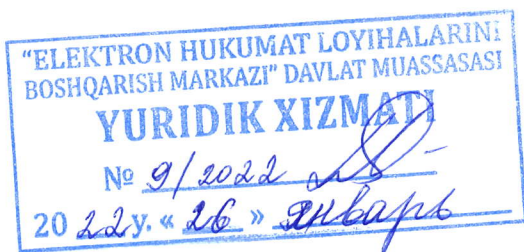 "ELEKTRON HUKUMAT LOYIHALARINI
BOSHQARISH MARKAZI" DAVLAT MUASSASASI
YURIDIK XIZMATI
№ 9/2022
20 22 y. « 26 » январь